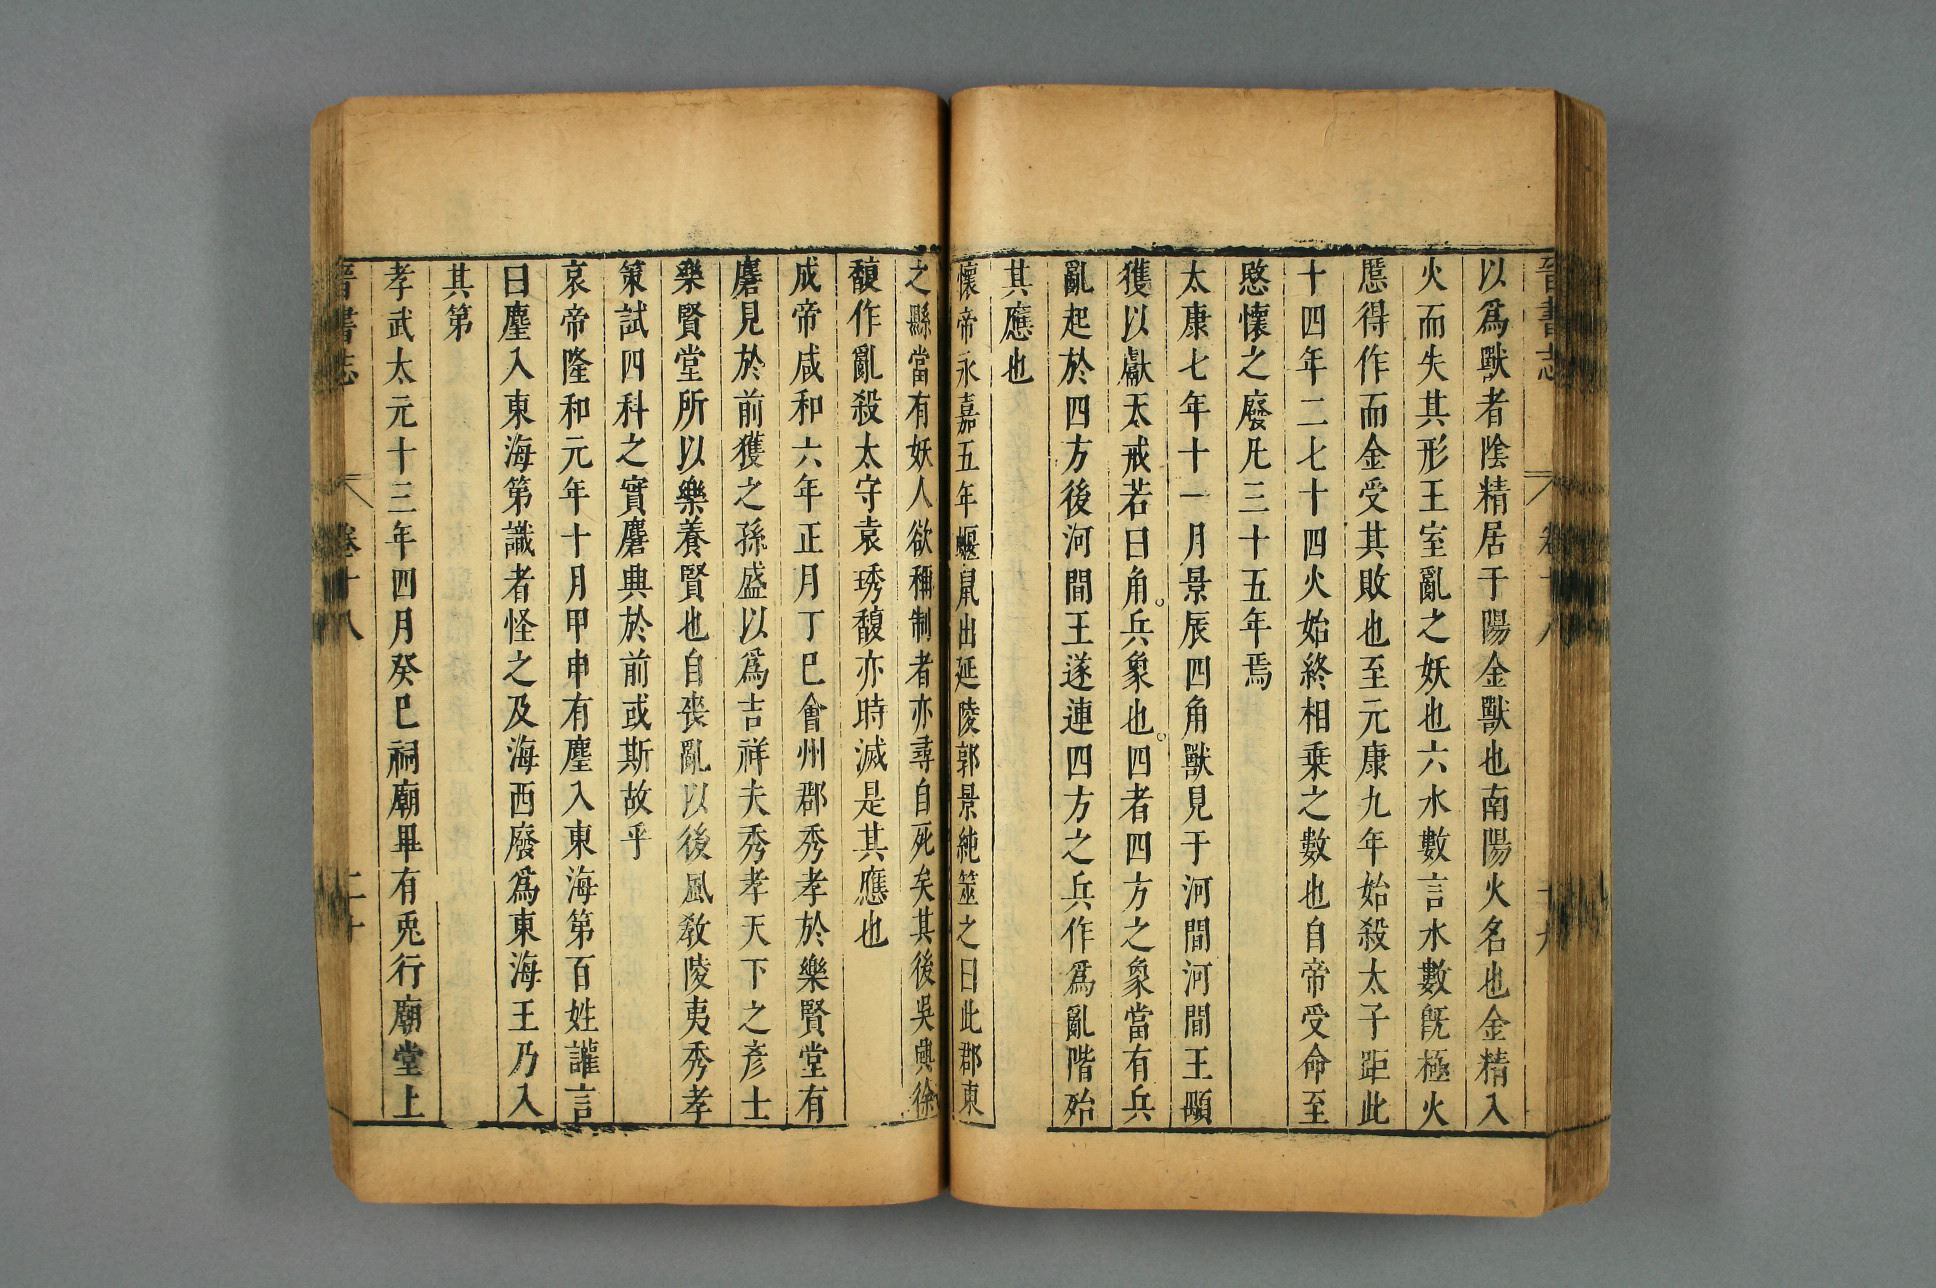 晉書志 卷十八 十九
以爲獸者陰精居于陽金獸也南陽火名也金精入
火而失其形王室亂之妖也六水數言水數旣極火
慝得作而金受其敗也至元康九年始殺太子距此
十四年二七十四火始終相乘之數也自帝受命至
愍懷之廢凡三十五年焉
太康七年十一月景辰四角獸見于河間河間王顒
獲以獻天戒若曰角兵象也四者四方之象當有兵
亂起於四方後河間王遂連四方之兵作爲亂階殆
其應也
懷帝永嘉五年蝘鼠出延陵郭景純筮之曰此郡東
之縣當有妖人欲稱制者亦尋自死矣其後吳興徐
馥作亂殺太守袁琇馥亦時滅是其應也
成帝咸和六年正月丁巳會州郡秀孝於樂賢堂有
麏見於前獲之孫盛以爲吉祥夫秀孝天下之彥士
樂賢堂所以樂養賢也自喪亂以後風敎陵夷秀孝
策試四科之實麏興於前或斯故乎
哀帝隆和元年十月甲申有麈入東海第百姓讙言
曰麈入東海第識者怪之及海西廢爲東海王乃入
其第
孝武太元十三年四月癸巳祠廟畢有兎行廟堂上
晉書志 卷十八 二十